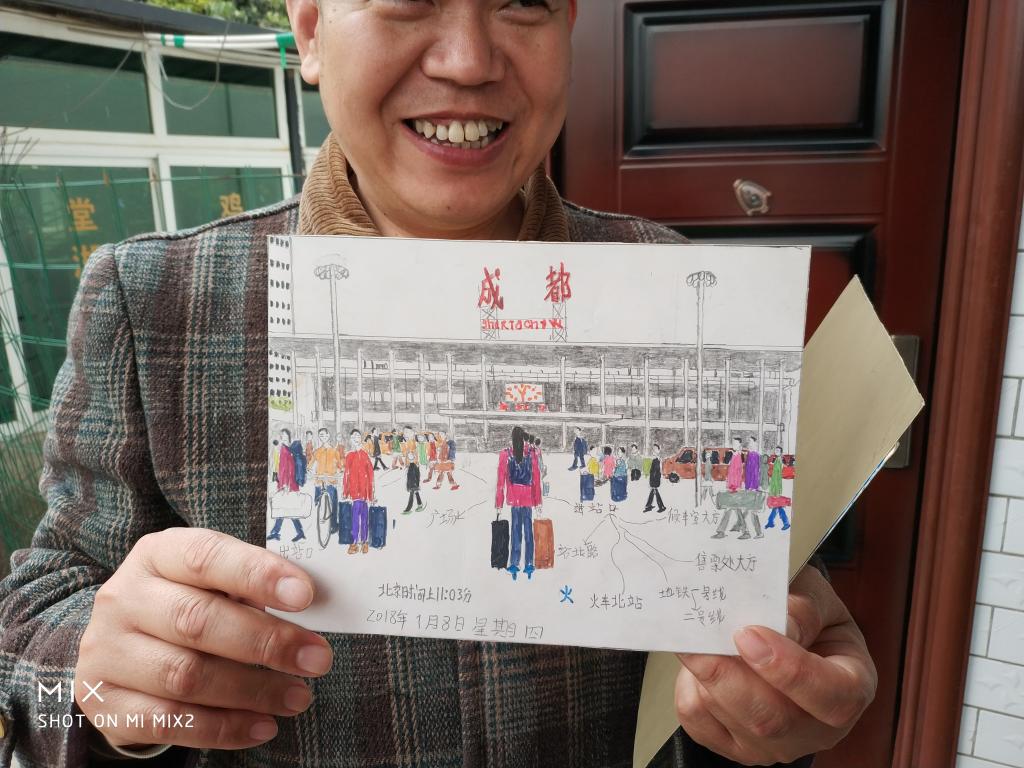 堂 鸡
成都
广场上
进站口
候车室大厅
出站口
站北路
售票处大厅
北京时间上11:03分
火 火车北站
地铁一号线
二号线
2018年1月8日 星期四
MIX
SHOT ON MI MIX2